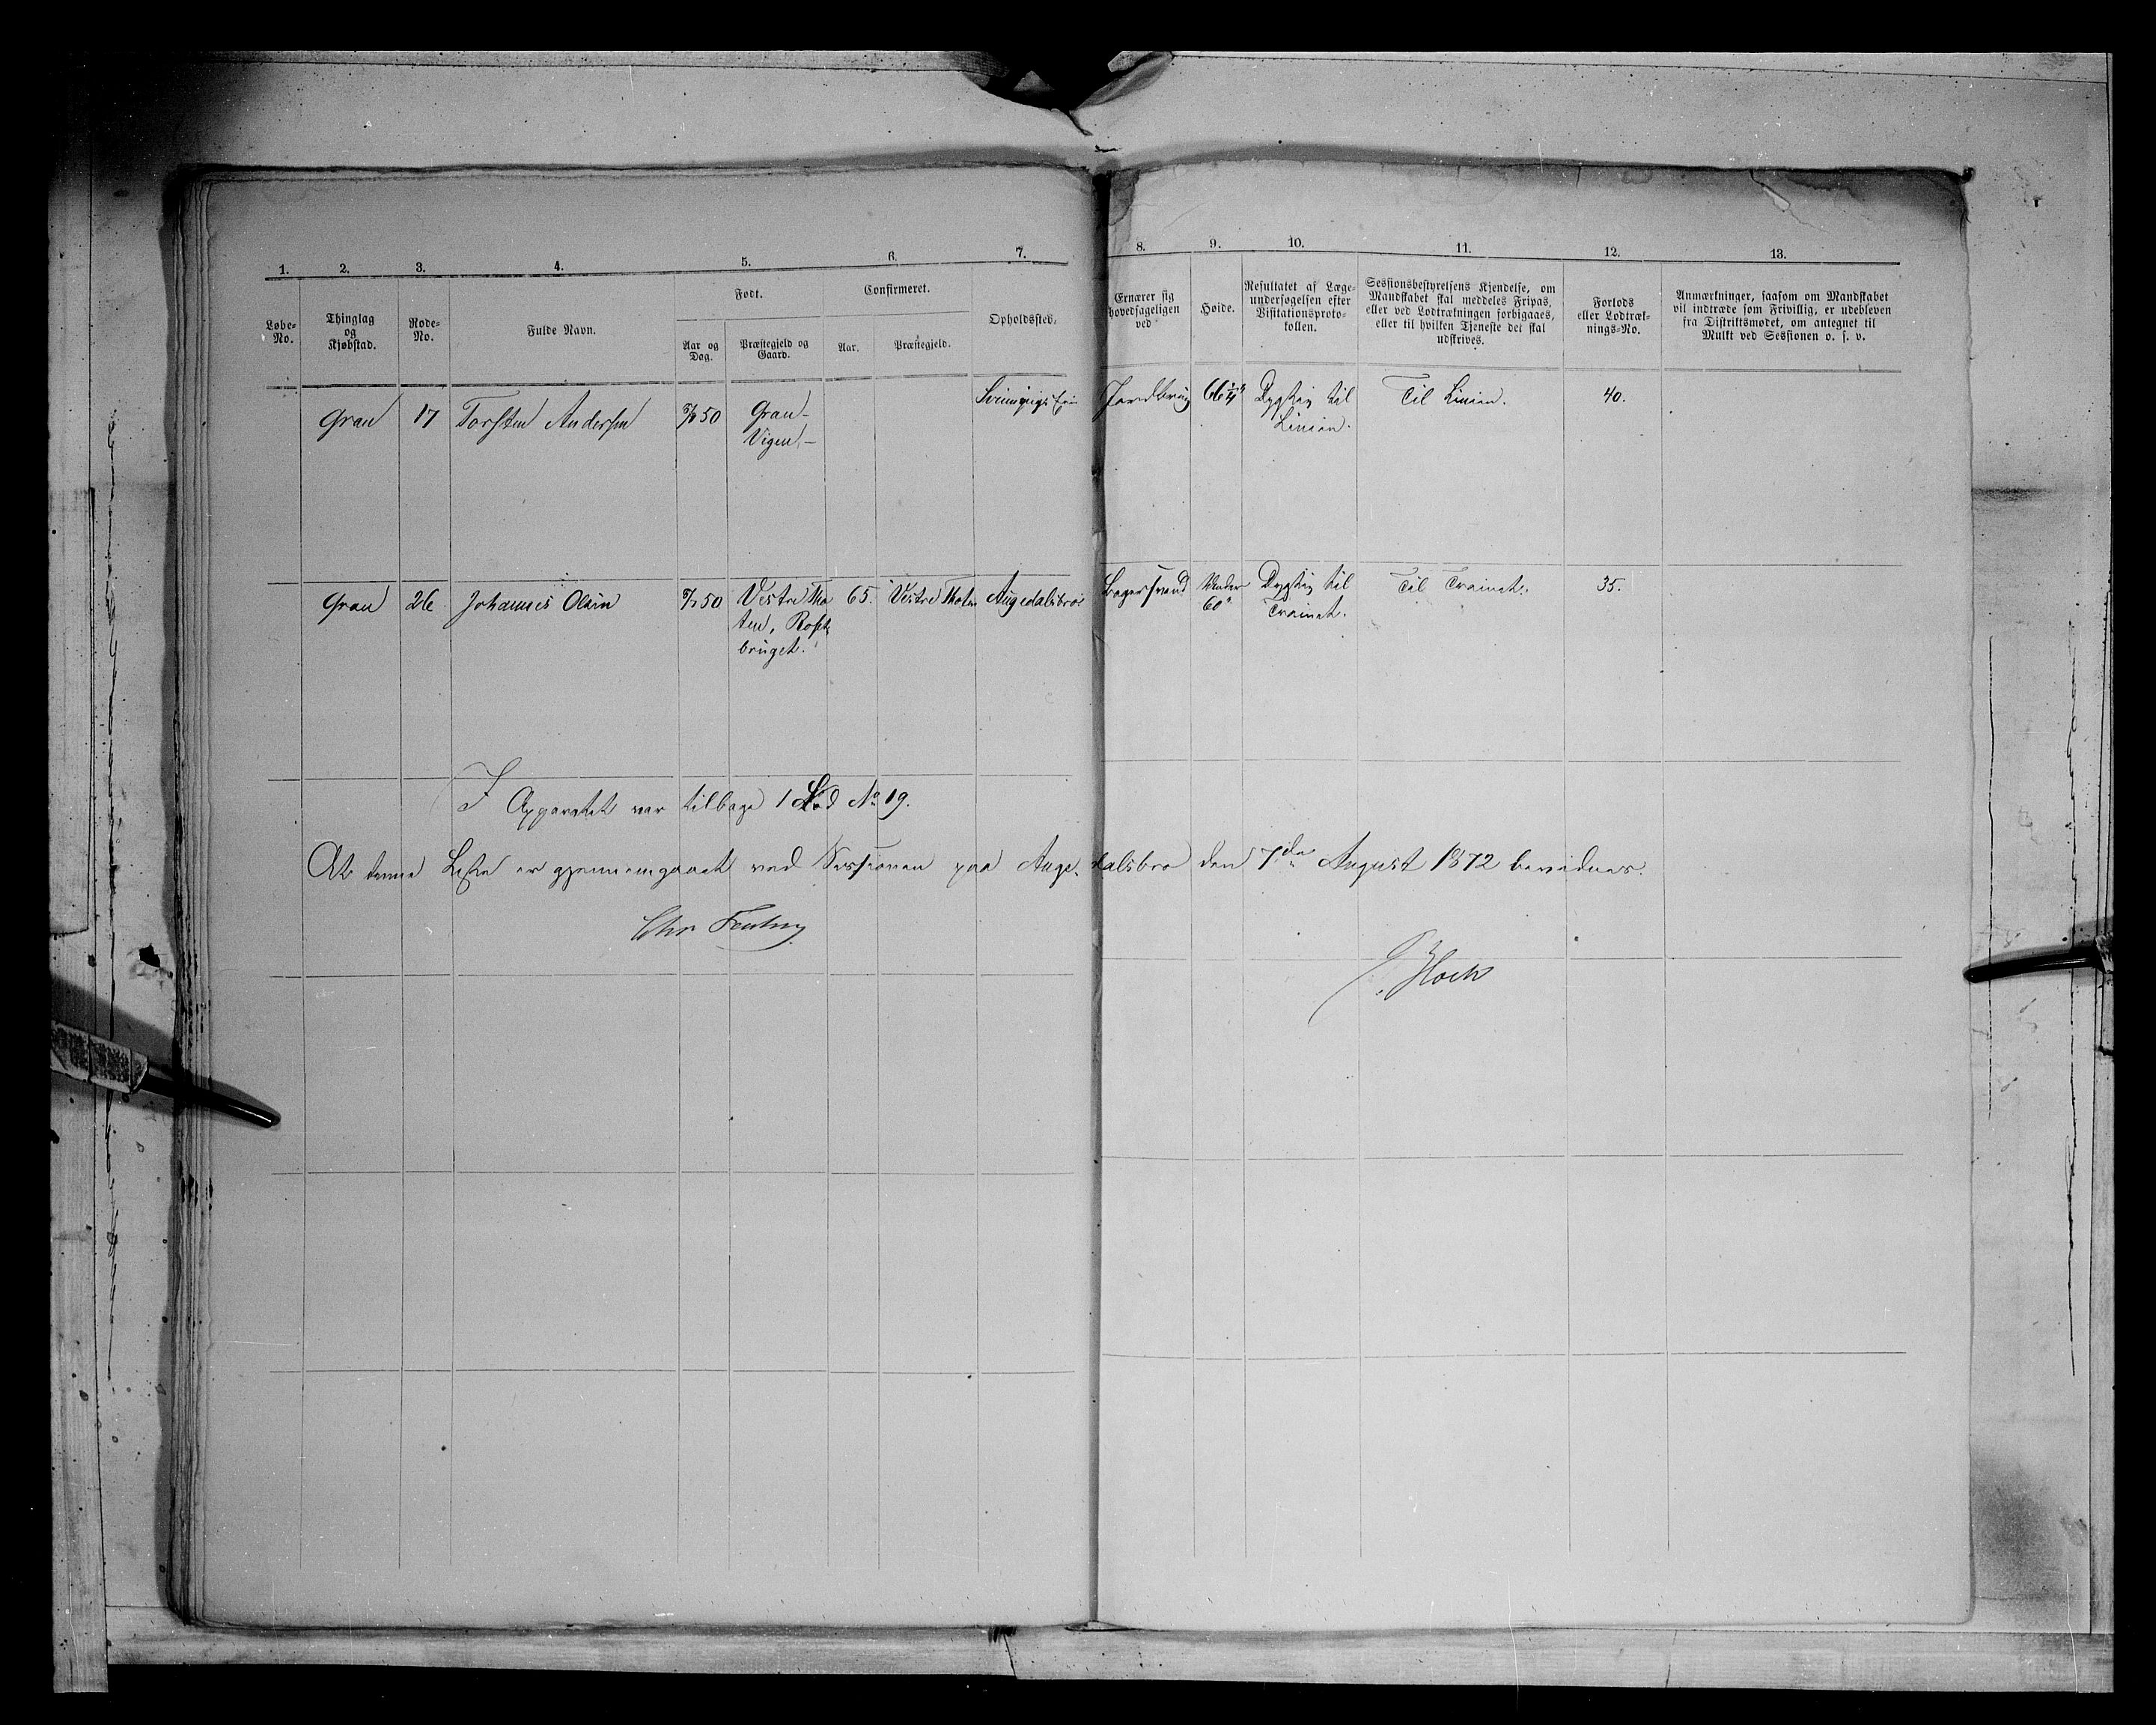 1. 2. 3. 4. 5. 6. 7. 8. 9. 10. 11. 12. 13.
Løbe-No.
Thinglag og Kjøbstad.
Rode-No.
Fulde Navn.
Født.
Aar og Dag.
Præstegjeld og Gaard.
Confirmeret.
Aar.
Præstegjeld.
Opholdssted.
Ernærer sig hovedsageligen ved
Høide.
Resultatet af Læge-undersøgelsen efter Visitationsproto-kollen.
Sessionsbestyrelsens Kjendelse, om Mandskabet skal meddeles Fripas, eller ved Lodtrækningen forbigaaes, eller til hvilken Tjeneste det skal udskrives.
Forlods eller Lodtræk-nings-No.
Anmærkninger, saasom om Mandskabet vil indtræde som Frivillig, er udebleven fra Distriktsmødet, om antegnet til Mulkt ved Sessionen o. s. v.
Gran 17 Torsten Andersen 50 Gran- Jordbrug 66 1/4" Dygtig til Til Linien. 40.
Vigen.- Linien.
Gran 26 Johannes Olsen 50 Vestre Tho 65. Vestre Thoten Augedalsbroe Bagersvend Under Dygtig til Til Trainet. 35.
ten, 60" Trainet.
bruget.
I Apparatet var tilbage 1 Lod No 19.
At denne Liste er gjennemgaaet ved Sessionen paa Auge-dalsbro den 7de August 1872 bevidnes.
Chr